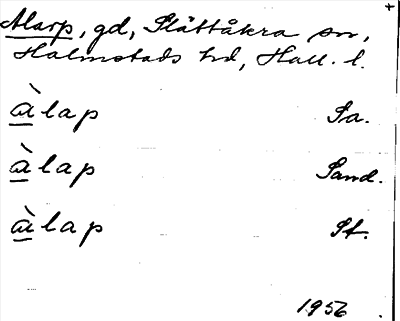 Alarp, gd, Slättåkra sn,
Halmstads hd, Hall. l.
àlap Sa.
àlap Sand.
àlap St.
1956